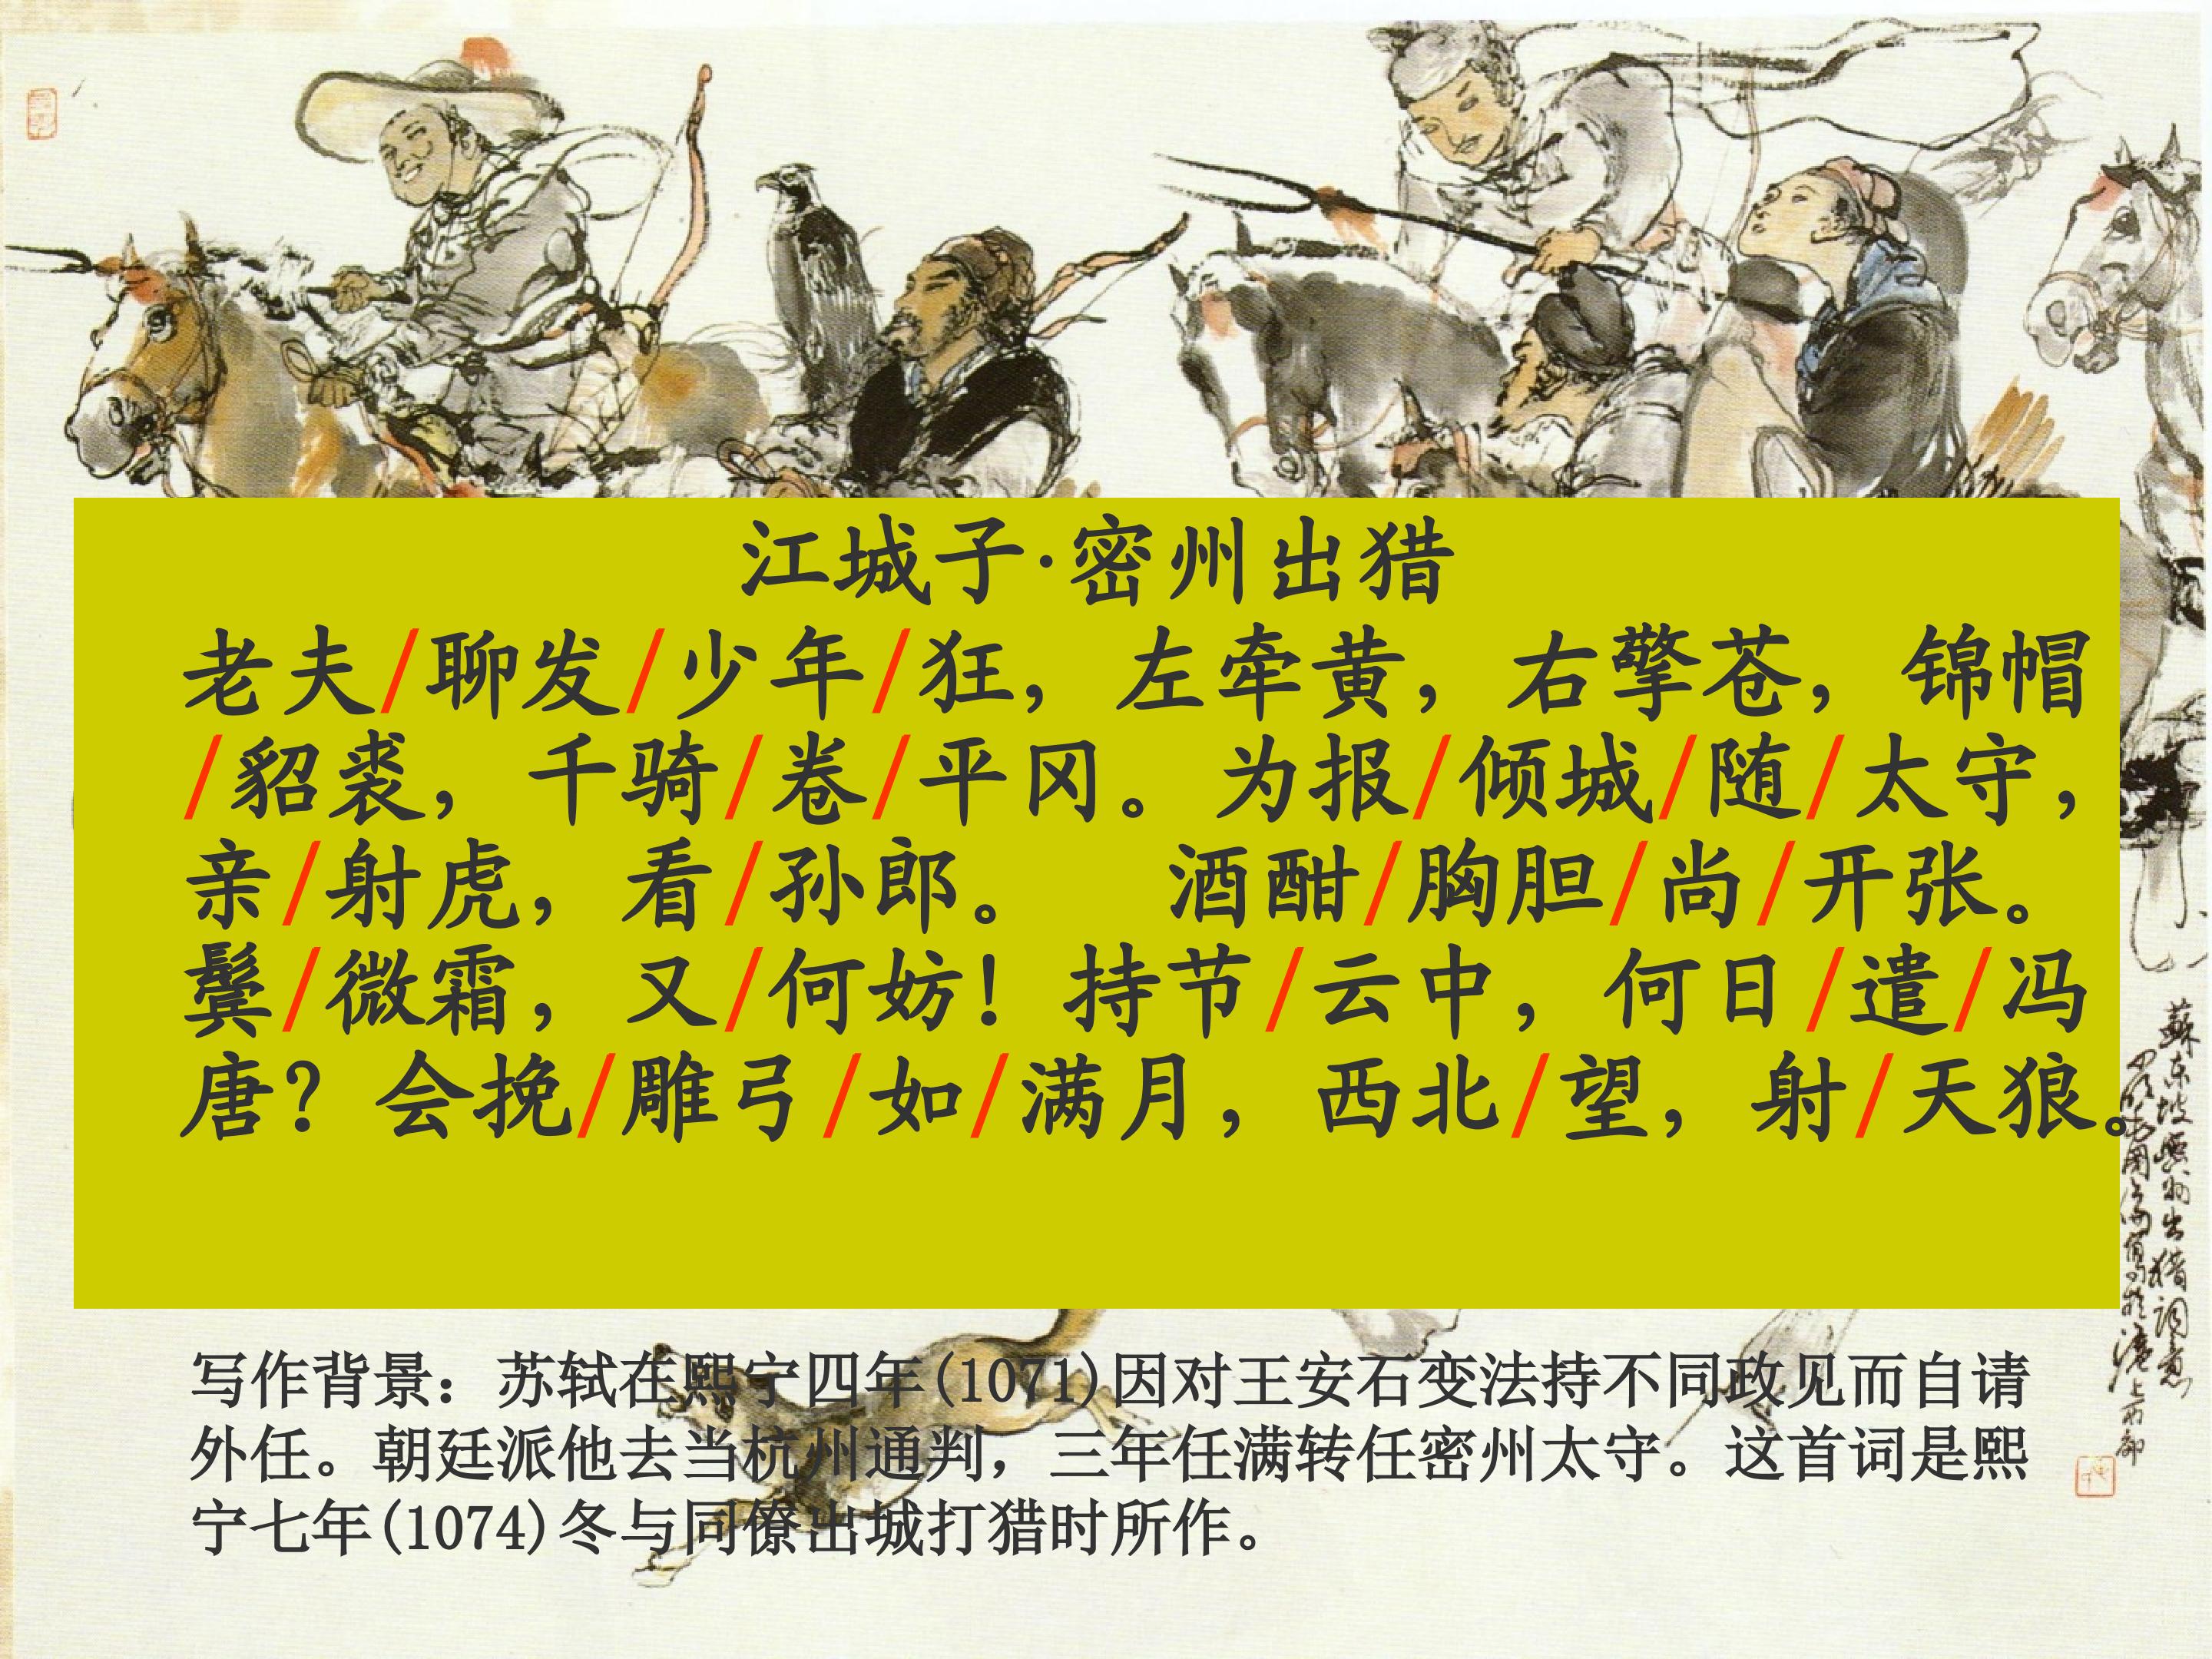 江城子·密州出猎
老夫/聊发/少年/狂，左牵黄，右擎苍，锦帽
/貂裘，千骑/卷/平冈。为报/倾城/随/太守，
亲/射虎，看/孙郎。 酒酣/胸胆/尚/开张。
鬓/微霜，又/何妨！持节/云中，何日/遣/冯
唐？会挽/雕弓/如/满月，西北/望，射/天狼。
写作背景：苏轼在熙宁四年(1071)因对王安石变法持不同政见而自请
外任。朝廷派他去当杭州通判，三年任满转任密州太守。这首词是熙
宁七年(1074)冬与同僚出城打猎时所作。
蘇东坡密州出猎词意